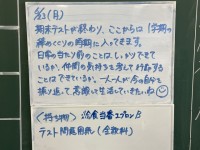 (月)
期末テストが終わり、ここからは1学期の
締めくくりの時期に入ってきます。
日常の当たり前のことは、しっかりできて
いるか、仲間の気持ちを考えて行動する
ことはできているか、一人一人が今の自分を
振り返って高めて生活していきたいね
<持ち物> 給食当番エプロンB
テスト問題用紙(全教科)